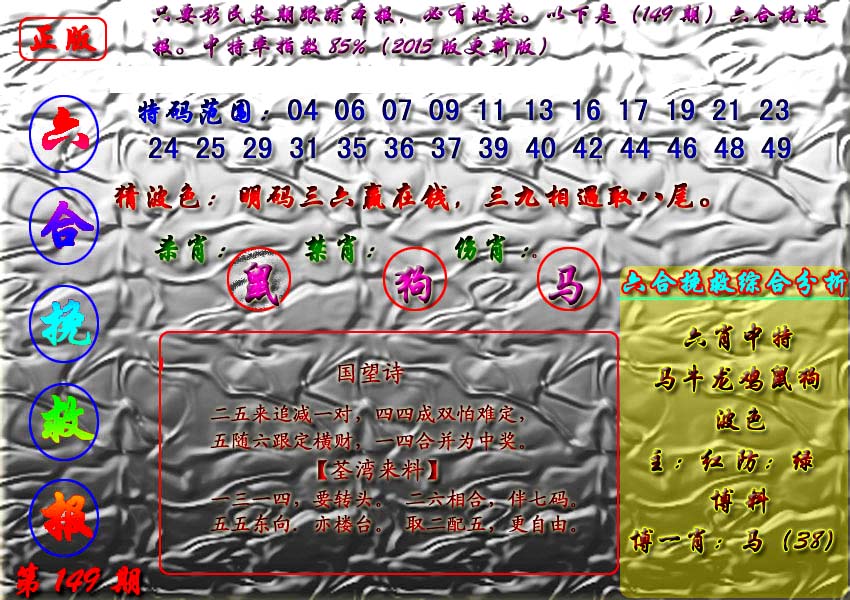 正版
只要彩民长期跟踪本报，必有收获。以下是（149期）六合挽救
报。中特率指数85%（2015版更新版）
六合挽救报
第149期
特码范围：04 06 07 09 11 13 16 17 19 21 23
24 25 29 31 35 36 37 39 40 42 44 46 48 49
猜波色：明码三六赢在钱，三九相遇取八尾。
杀肖：鼠 禁肖：狗 伤肖：马
国望诗
二五来追减一对，四四成双怕难定，
五随六跟定横财，一四合并为中奖。
【荃湾来料】
一三一四，要转头。 二六相合，伴七码。
五五东向．亦楼台。 取二配五，更自由。
六合挽救综合分析
六肖中特
马牛龙鸡鼠狗
波色
主：红防：绿
博料
博一肖：马（38）